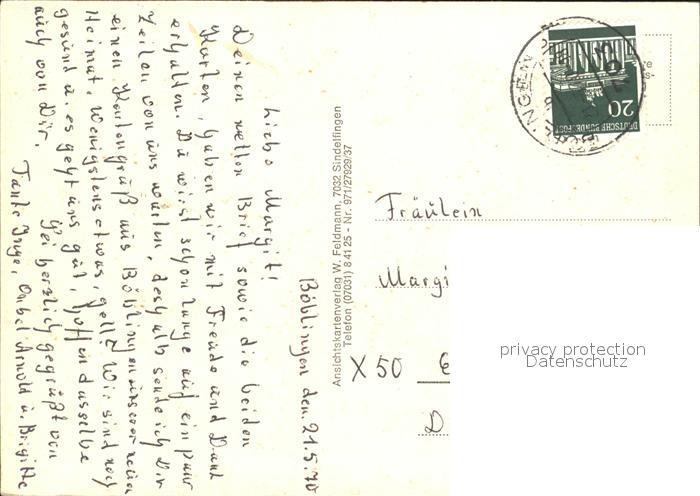 Böblingen den 21.5.70
Liebe Margit!
Deinen netten Brief sowie die beiden
Karten, haben wir mit Freude und Dank
erhalten. Du wirst schon lange auf ein paar
Zeilen von uns warten, deshalb sende ich Dir
einen Kartengruß aus Böblingen unserer neuen
Heimat. Wenigstens etwas, gell? Wir sind noch
gesund u. es geht uns gut, hoffen dasselbe
auch von Dir.
Sei herzlich gegrüßt von
Tante Inge, Onkel Arnold u. Brigitte
Ansichtskartenverlag W. Feldmann, 7032 Sindelfingen
Telefon (07031) 8 41 25 - Nr. 971/27929/37
DEUTSCHE BUNDESPOST
20
Fräulein
Margi
X 50 6
D
privacy protection
Datenschutz